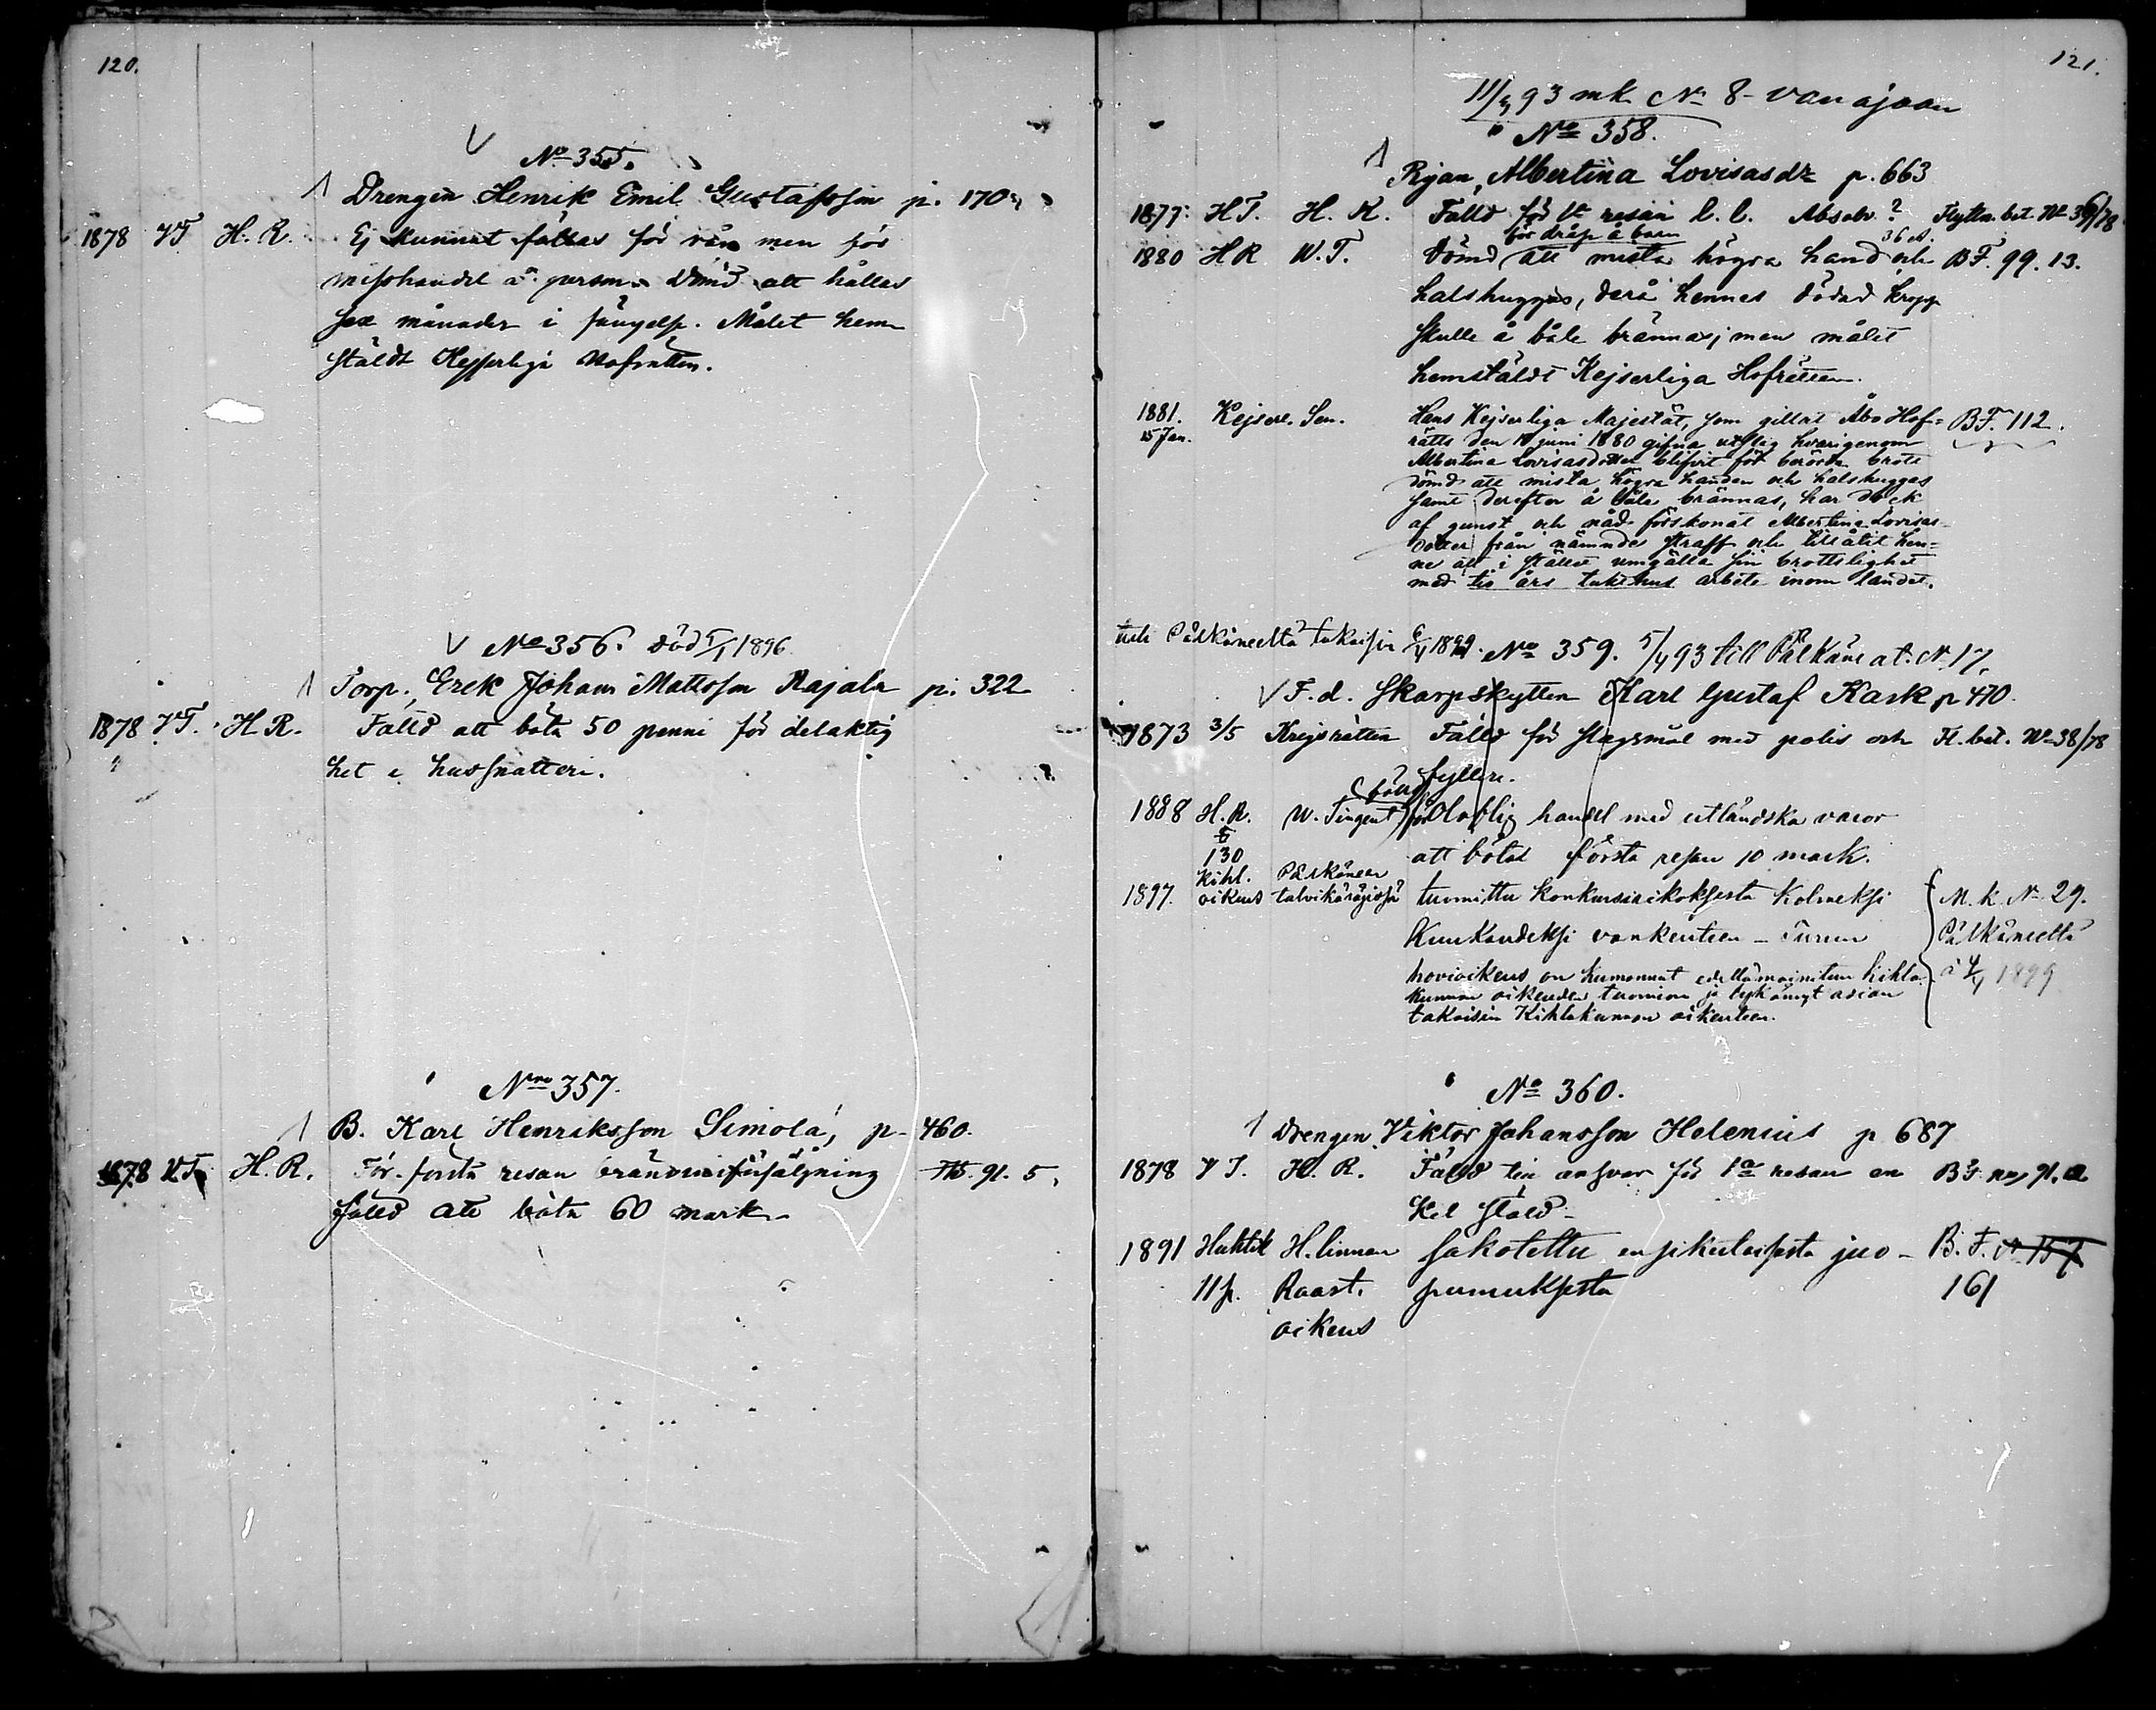 120.
No 355.
Drengen Henrik Emil Gustafsson p. 170
1878 VT H. R. Ej kunnat fällas för rån men för
misshandel å person dömd att hållas
sex månader i fängelse. Målet hem
stäldt Kejserliga Hofrätten.
No 356. död 5/1 1896
Torp. Erik Johan Mattsson Rajala p. 322
1878 VT. H R. Fälld att böta 50 penni för delaktig
het i hussnatteri.
No 357.
B. Karl Henriksson Simola, p. 460.
1878 VT. H. R. För första resan bränvinsförsäljning 91. 5.
fälld att böta 60 mark
121.
11/5 93 mk No 8 Vanajaan
No 358.
Pigan, Albertina Lovisasdr p. 663
1877 HT. H. R. Fälld för 1a resan l. l. Absolv. ? Flyttn. bet. No 36/78
för dråp å barn 36 st.
1880 HR W. T. Dömd att mista högra hand och BF. 99. 13.
halshuggas, derå hennes dödad kropp
skulle å båle brännas; men målet
hemstäldt Kejserliga Hofrätten.
1881. Kejserl. Sen. Hans Kejserliga Majestät, som gillat Åbo Hof= BF. 112.
15 Jan. rätts den 18 juni 1880 gifna utslag hvarigenom
Albertina Lovisasdotter blifvit för berörda brott
dömd att mista högra handen och halshuggas
samt derefter å båle brännas, har dock
af gunst och nåd förskonat Albertina Lovisas-
dotter från nämnde straff och tillåtit hen=
ne att i stället umgälla sin brottslighet
med tio års tukthus arbete inom landet.
tuli Pälkäneeltä takaisin 6/4 1899. No 359. 5/4 93 till Pälkäne at. N. 17.
F. d. Skarpskytten Karl Gustaf Kask p 470.
1873 3/5 Krigsrätten Fälld för slagsmål med polis och Fl. bet. No 38/78
fylleri.
1888 H. R. W. Tinget fälld för olaflig handel med utländska varor
§ 130 att böta första resan 10 mark.
1897. Kihl. oikeus Pälkäneen talvikäräjissä tuomittu konkurssirikoksesta kolmeksi M. k. No 29.
kuukaudeksi vankeuteen – Turun Pälkäneeltä
hovioikeus on kumonnut edellämainitun kihla 4/4 1899
kunnan oikeuden tuomion ja lykännyt asian
takaisin Kihlakunnan oikeuteen.
No 360.
Drengen Viktor Johansson Helenius p 687
1878 V T. H. R. Fälld till ansvar för 1a resan en BF. 91.
kel stöld
1891 Huhtik H. linnan sakotettu ensikertaisesta juo- B. F. No 157
11 p. Raast. pumuksesta 161
oikeus